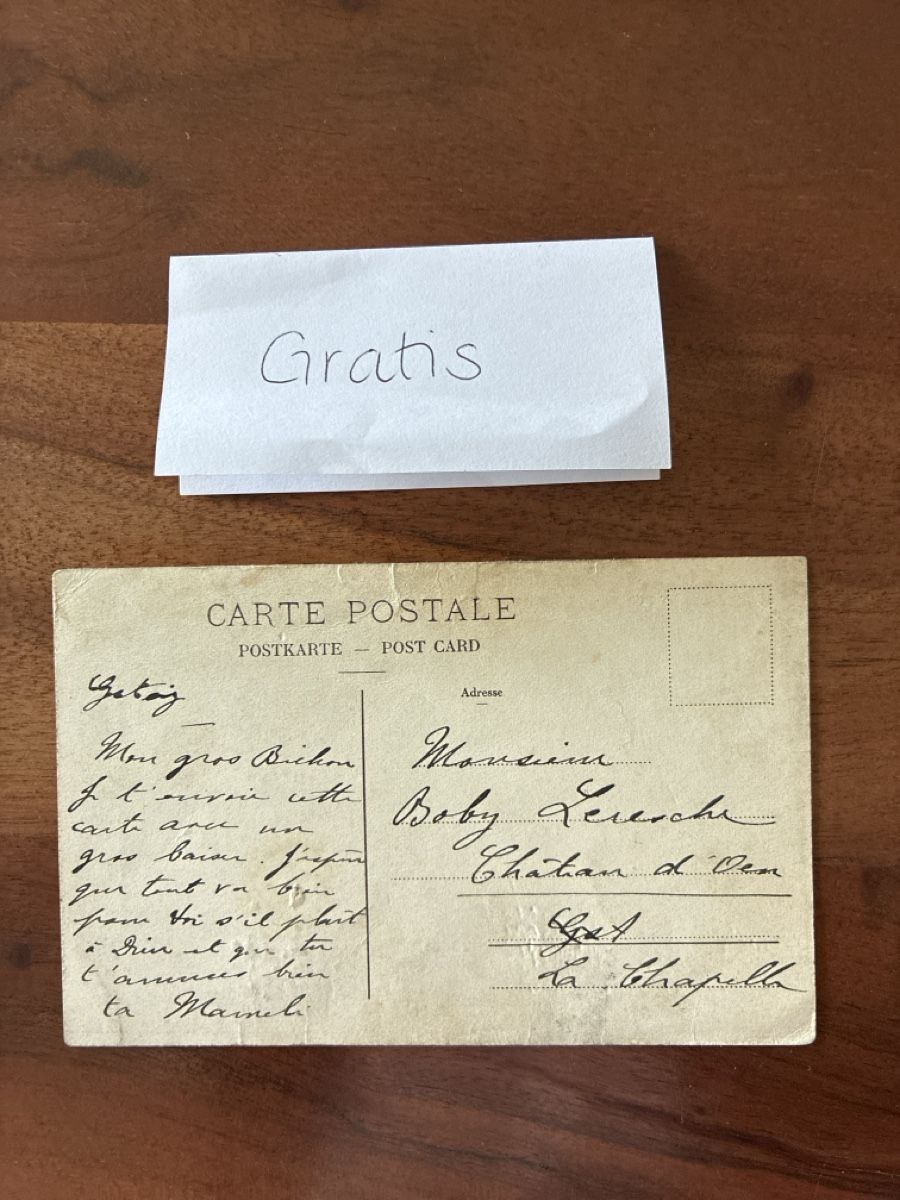 Gratis
CARTE POSTALE
POSTKARTE — POST CARD
Adresse
Mon gros Bichon
Je t'envoie cette
carte avec un
gros baiser. J'espère
que tout va bien
pour toi s'il plait
à Dieu et que tu
t'amuses bien
ta Mameli
Monsieur
Boby Leresche
Château d'Oex
La Chapelle